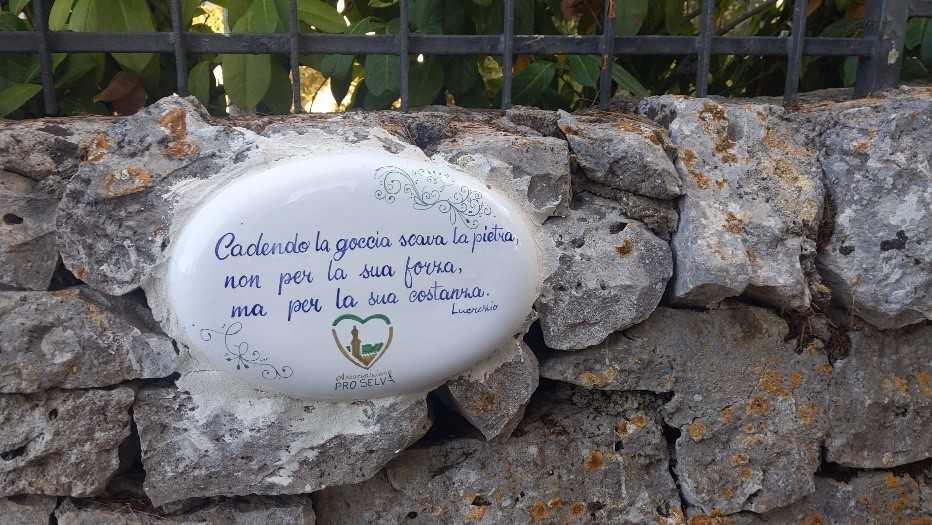 Cadendo la goccia scava la pietra,
non per la sua forza,
ma per la sua costanza.
Lucrezio
Associazione
PRO SELVA